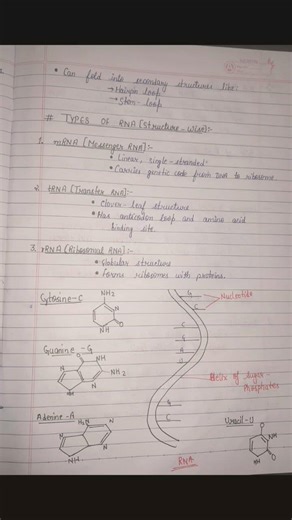 • Can fold into secondary structures like:
→ Hairpin loop
→ Stem-loop
# TYPES OF RNA [Structure-Wise]:-
1. mRNA [Messenger RNA]:-
• Linear, single-stranded
• Carries genetic code from DNA to ribosome
2. tRNA [Transfer RNA]:-
• Clover-leaf structure
• Has anticodon loop and amino acid
binding site.
3. rRNA [Ribosomal RNA]:-
• Globular structure
• Forms ribosomes with proteins.
Cytosine-C
NH2
N
NH
O
Guanine-G
O
NH
NH2
N
N
NH
Adenine-A
H2N
N
N
N
NH
G
C
Nucleotide
C
G
G
A
Bells of sugar-
Phosphates
G
C
RNA
Uracil-U
O
NH
O
HN